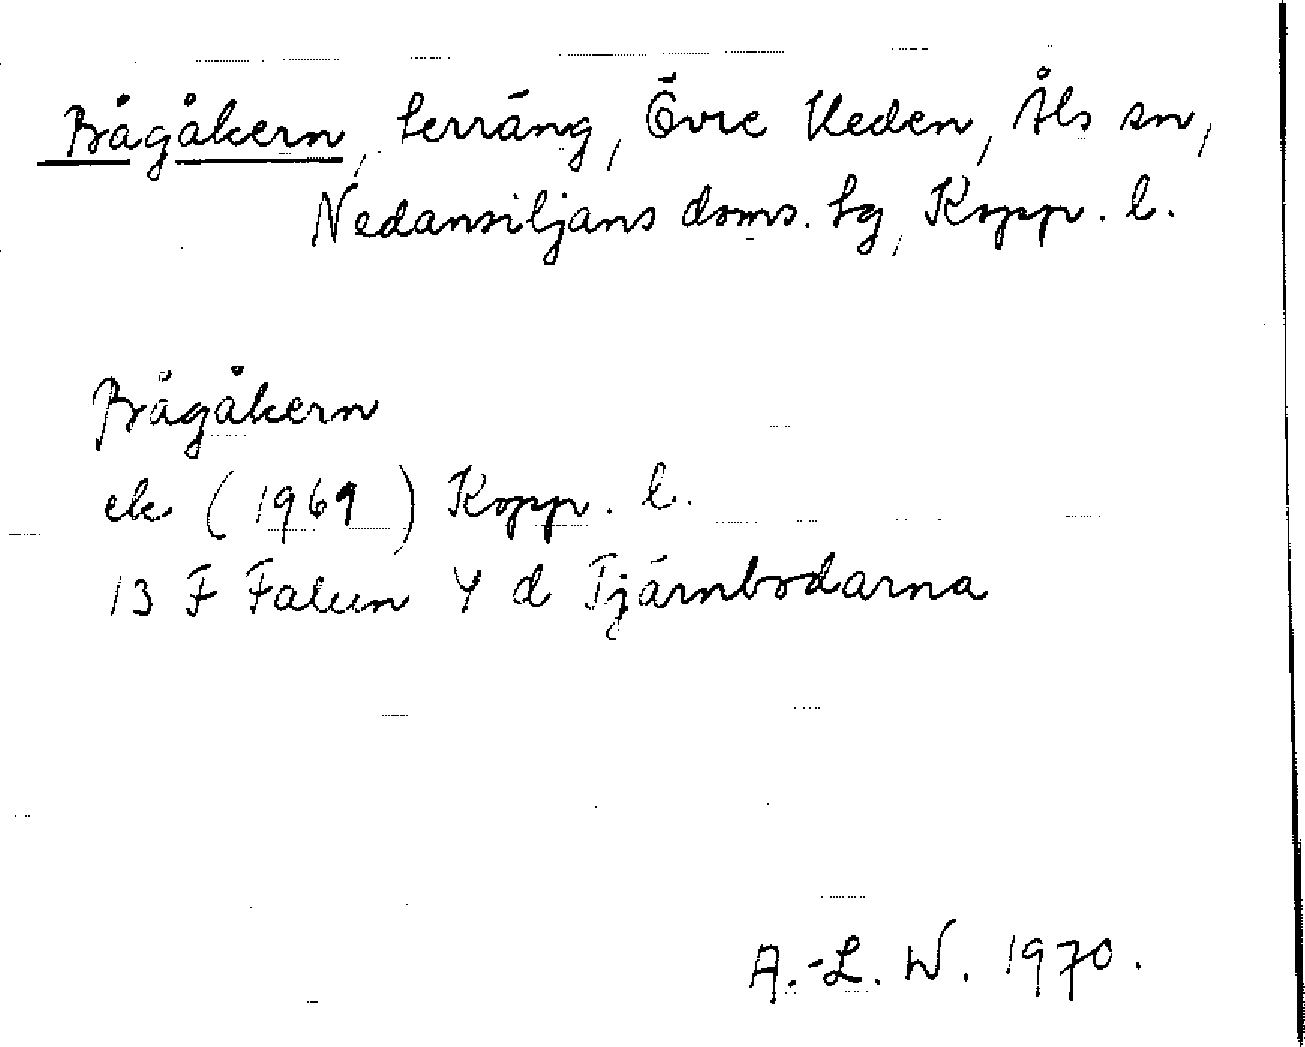 Bågåkern, terräng, Övre Heden, Åls sn,
Nedansiljans doms. tg, Kopp. l.
Bågåkern
ek (1969) Kopp. l.
13 F Falun 4 d Tjärnbodarna
A.-L. W. 1970.